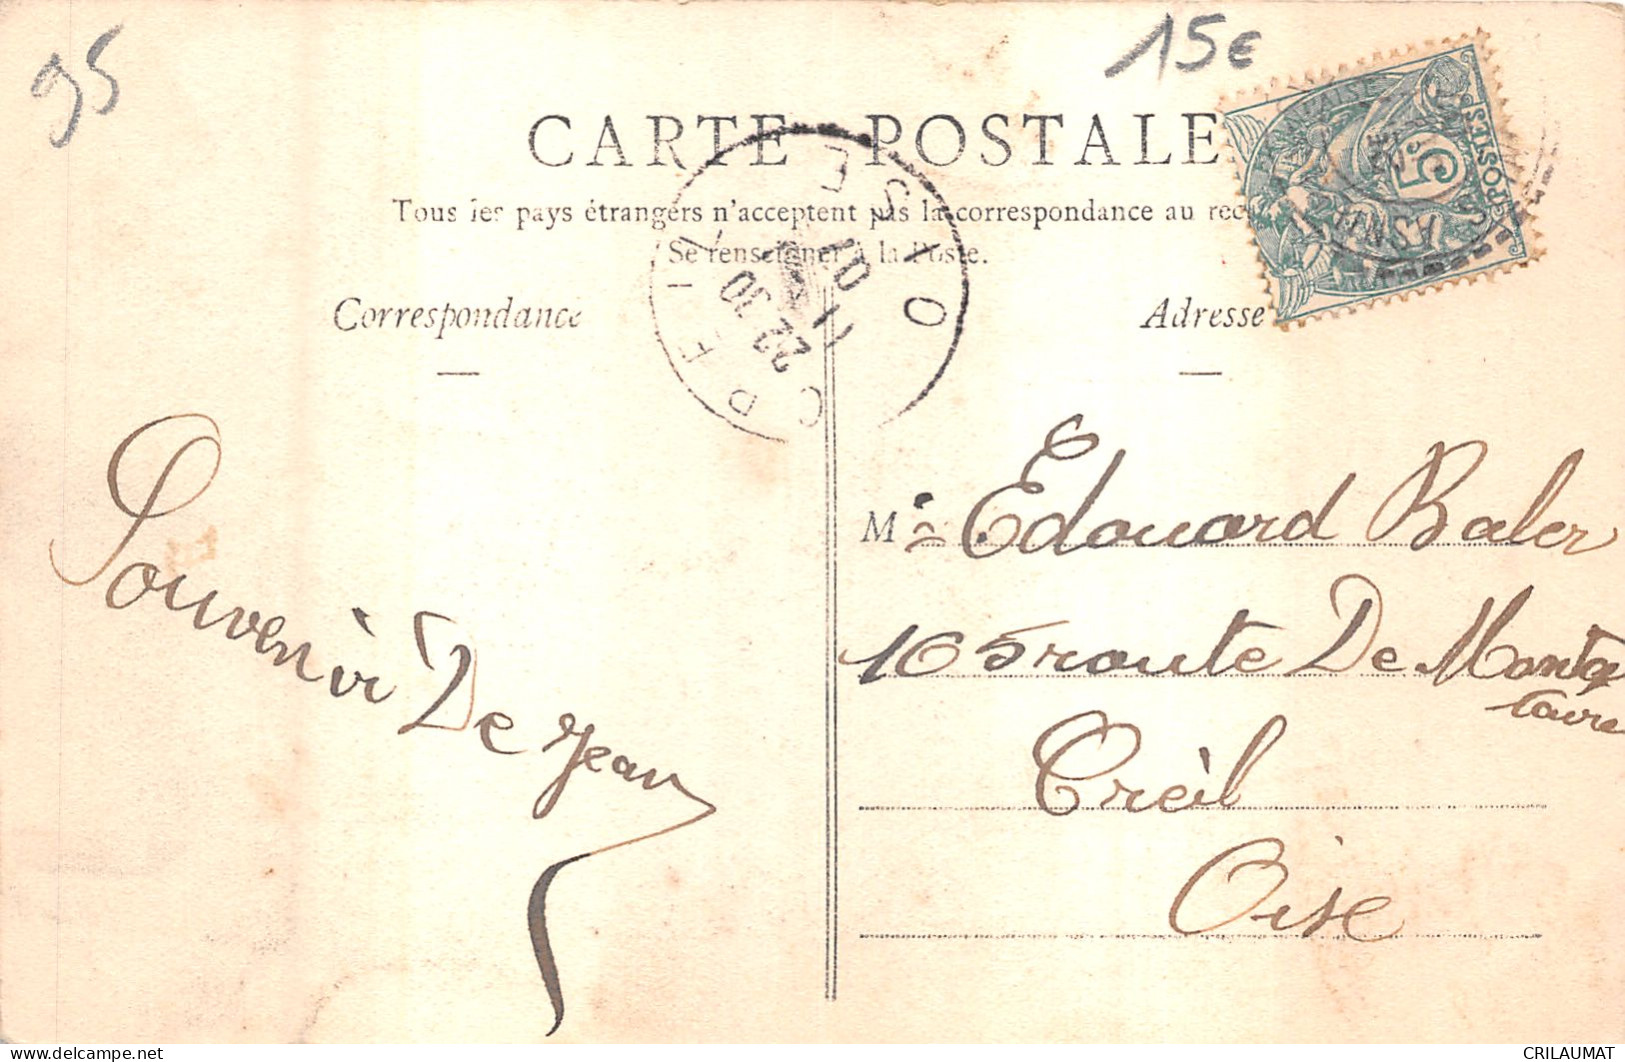 95
15€
CARTE POSTALE
Tous les pays étrangers n'acceptent pas la correspondance au rec
Se renseigner à la Poste.
Correspondance
Adresse
POSTES
5
CREIL
OISE
22 30
11
07
Souvenir De Jean
M r Edouard Baler
105 route De Monta
taire
Creil
Oise
CRILAUMAT